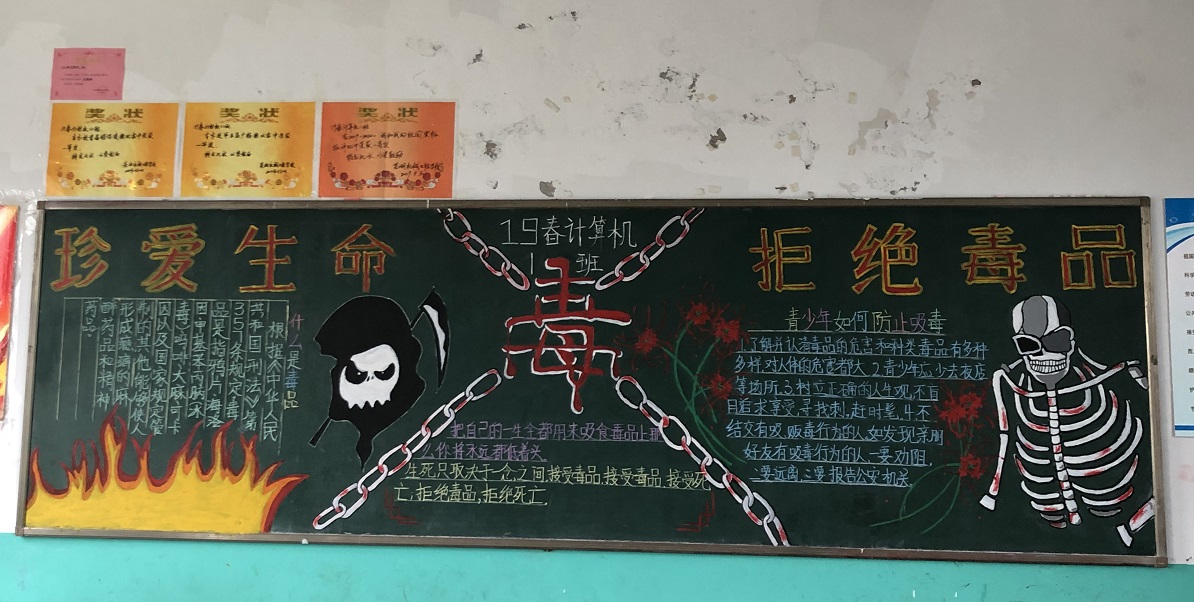 奖状
奖状
奖状
珍爱生命
19春计算机
1 班
毒
拒绝毒品
什么是毒品
根据《中华人民
共和国刑法》第
357条规定,毒
品是指鸦片、海洛
因、甲基苯丙胺(冰
毒)、吗啡、大麻、可卡
因以及国家规定管
制的其他能够使人
形成瘾癖的麻
醉药品和精神
药品。
把自己的一生全都用来吸食毒品上那
么你将永远都低着头
生死只取决于一念之间,接受毒品,接受死
亡,拒绝毒品,拒绝死亡
青少年如何防止吸毒
1.了解并认清毒品的危害和种类毒品有多种
多样,对人体的危害都大,2.青少年应少去夜店
等场所,3.树立正确的人生观,不盲
目追求享受,寻找刺,赶时髦,4.不
结交有吸、贩毒行为的人,如发现亲朋
好友有吸毒行为的人,一要劝阻,
二要远离,三要报告公安机关.